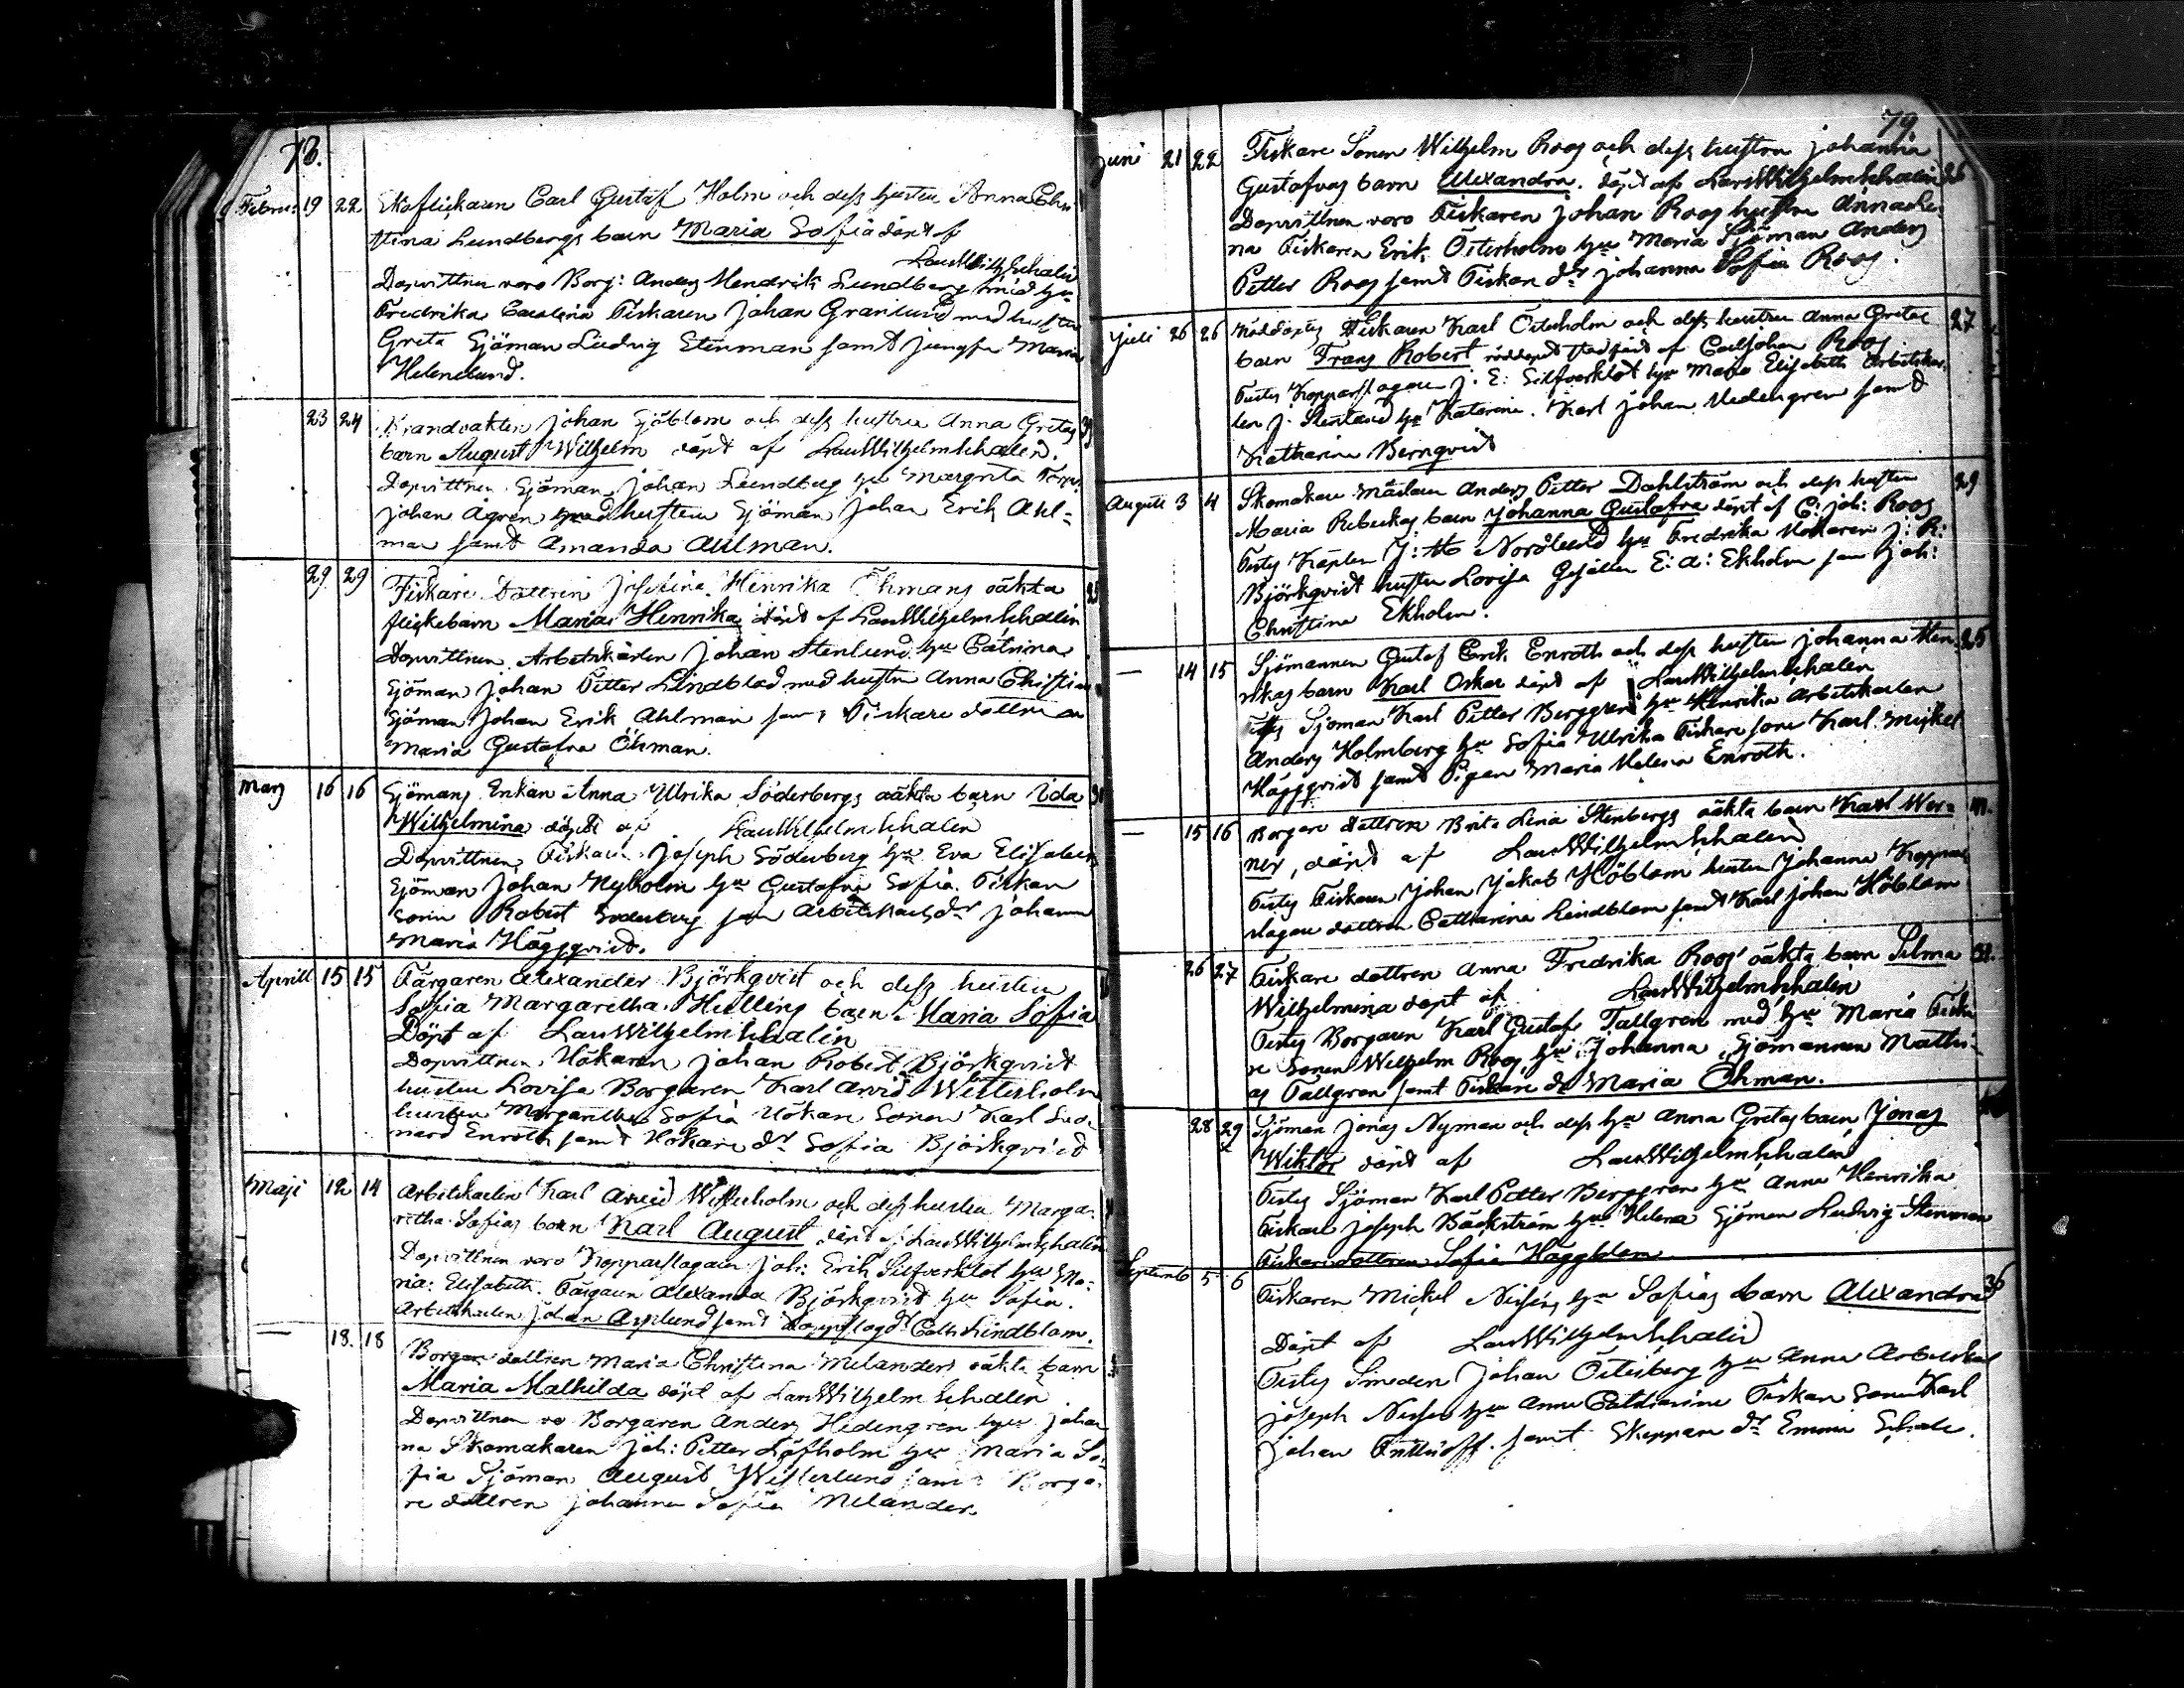 78.
Februi 19 22 Carl Gustaf Holm och dess hustru Anna Chri
stina Lundbergs barn Maria Sofia döpt af
Lars Wilh Schalin
Dopvittnen voro Borg: Anders Hendrik Lundberg med hu
Fredrika Carolina Fiskaren Johan Granlund med hustru
Greta Sjöman Ludvig Stenman samt jungfru Maria
Helenelund.
23 24 Brandvakten Johan Sjöblom och dess hustru Anna Gretas
barn August Wilhelm döpt af Lars Wilhelm Schalin.
Dopvittnen Sjöman Johan Lundberg hu Margreta
Johan Ågren med hustru Sjöman Johan Erik Ahl=
man samt Amanda Ahlman.
29 29 Fiskare Dottren Josefina Henrika Öhmans oäkta
flickebarn Maria Henrika döpt af Lars Wilhelm Schalin
Dopvittnen Arbetskarlen Johan Stenlund hu Catrina
Sjöman Johan Petter Lindblad med hustru Anna Christina
Sjöman Johan Erik Ahlman samt Fiskare dottren
Maria Gustafva Öhman.
Mars 16 16 Sjömans Enkan Anna Ulrika Söderbergs oäkta barn Ida
Wilhelmina döpt af Lars Wilhelm Schalin
Dopvittnen Fiskaren Joseph Söderberg hu Eva Elisabeth
Sjöman Johan Nyholm hu Gustafva Sofia Fiskare
Sonen Robert Söderberg samt Arbetskarls dr Johanna
Maria Häggqvist.
Aprill 15 15 Färgaren Alexander Björkqvist och dess hustru
Sofia Margaretha Hellens barn Maria Sofia
Döpt af Lars Wilhelm Schalin
Dopvittnen Hökaren Johan Robert Björkqvist
hustru Lovisa Borgaren Karl Arvid Witterholm
hustru Margaretha Sofia Hökare Sonen Karl Leo
nard Enroth samt Hökare dr Sofia Björkqvist
Maji 12 14 Arbetskarlen Karl Arvid Witterholm och dess hustru Marga
retha Sofias barn Karl August döpt af Lars Wilhelm Schalin
Dopvittnen voro Kopparslagaren Joh: Erik Silfverklot hu Ma=
ria: Elisabeth. Färgaren Alexander Björkqvist hu Sofia.
Arbetskarlen Johan Asplund samt Cath Lindblom.
— 18. 18 Borgare dottren Maria Christina Melanders oäkta barn
Maria Mathilda döpt af Lars Wilhelm Schalin
Dopvittnen vo Borgaren Anders Hedengren hu Johan
na Skomakaren Joh: Petter Löfholm hu Maria So
fia Sjöman August Witterlund samt Borga
re dottren Johanna Sofia Melander
79.
Juni 21 22 Fiskare Sonen Wilhelm Roos och dess hustru Johanna
Gustafvas barn Alexandra. döpt af Lars Wilhelm Schalin 26
Dopvittnen voro Fiskaren Johan Roos hustru Anna Le
na Fiskaren Erik Österholm hu Maria Sjöman Anders
Petter Roos samt Fiskare dr Johanna Sofia Roos.
Juli 26 26 Nöddöptes Fiskaren Karl Österholm och dess hustru Anna Gretas 27
barn Frans Robert nöddopet stadfäst af Carl Johan Roos
Testes Kopparslagaren J: E: Silfverklot hu Maria Elisabeth Arbetskar
len J. Stenlund hu Katarina. Karl Johan Hedengren samt
Katharina Bernqvist
Augusti 3 4 Skomakare mästaren Anders Petter Dahlström och dess hustru 29
Maria Rebeckas barn Johanna Gustafva döpt af C: Joh: Roos
Testes Kapten J: M Nordlund hu Fredrika Hökaren J: R:
Björkqvist hustru Lovisa Gesällen E: A: Ekholm sam Joh:
Christina Ekholm.
— 14 15 Sjömannen Gustaf Erik Enroth och dess hustru Johanna Hen 25
rikas barn Karl Oskar döpt af Lars Wilhelm Schalin
Testes Sjöman Karl Petter Berggren hu Henrika Arbetskarlen
Anders Holmberg hu Sofia Ulrika Fiskare sone Karl Mickel
Häggqvist samt Pigan Maria Helena Enroth.
— 15 16 Borgare dottren Brita Lena Stenbergs oäkta barn Karl Wer= 41.
ner, döpt af Lars Wilhelm Schalin
Testes Fiskaren Johan Jakob Höblom hustru Johanna Koppar
slagare dottren Catharina Lindblom samt Karl Johan Höblom
26 27 Fiskare dottren Anna Fredrika Roos' oäkta barn Selma
Wilhelmina döpt af Lars Wilhelm Schalin
Testes Borgaren Karl Gustaf Tallgren med hu Maria Fiska
re Sonen Wilhelm Roos hu Johanna Sjömannen Mathi=
as Tallgren samt Fiskare dr Maria Öhman.
28 29 Sjöman Jonas Nyman och dess hu Anna Gretas barn Jonas
Wiktor döpt af Lars Wilhelm Schalin
Testes Sjöman Karl Petter Berggren hu Anna Henrika
Fiskare Joseph Bäckström hu Helena Sjöman Ludvig Stenman
Fiskare dottren Sofia Häggblom
Septemb 5 6 Fiskaren Mickel hu Sofias barn Alexandra 36
Döpt af Lars Wilhelm Schalin
Testes Smeden Johan Österberg hu Anna Arbetskarl
Joseph hu Anna Catharina Fiskare Sonen Karl
Johan samt Skeppare dr Emma